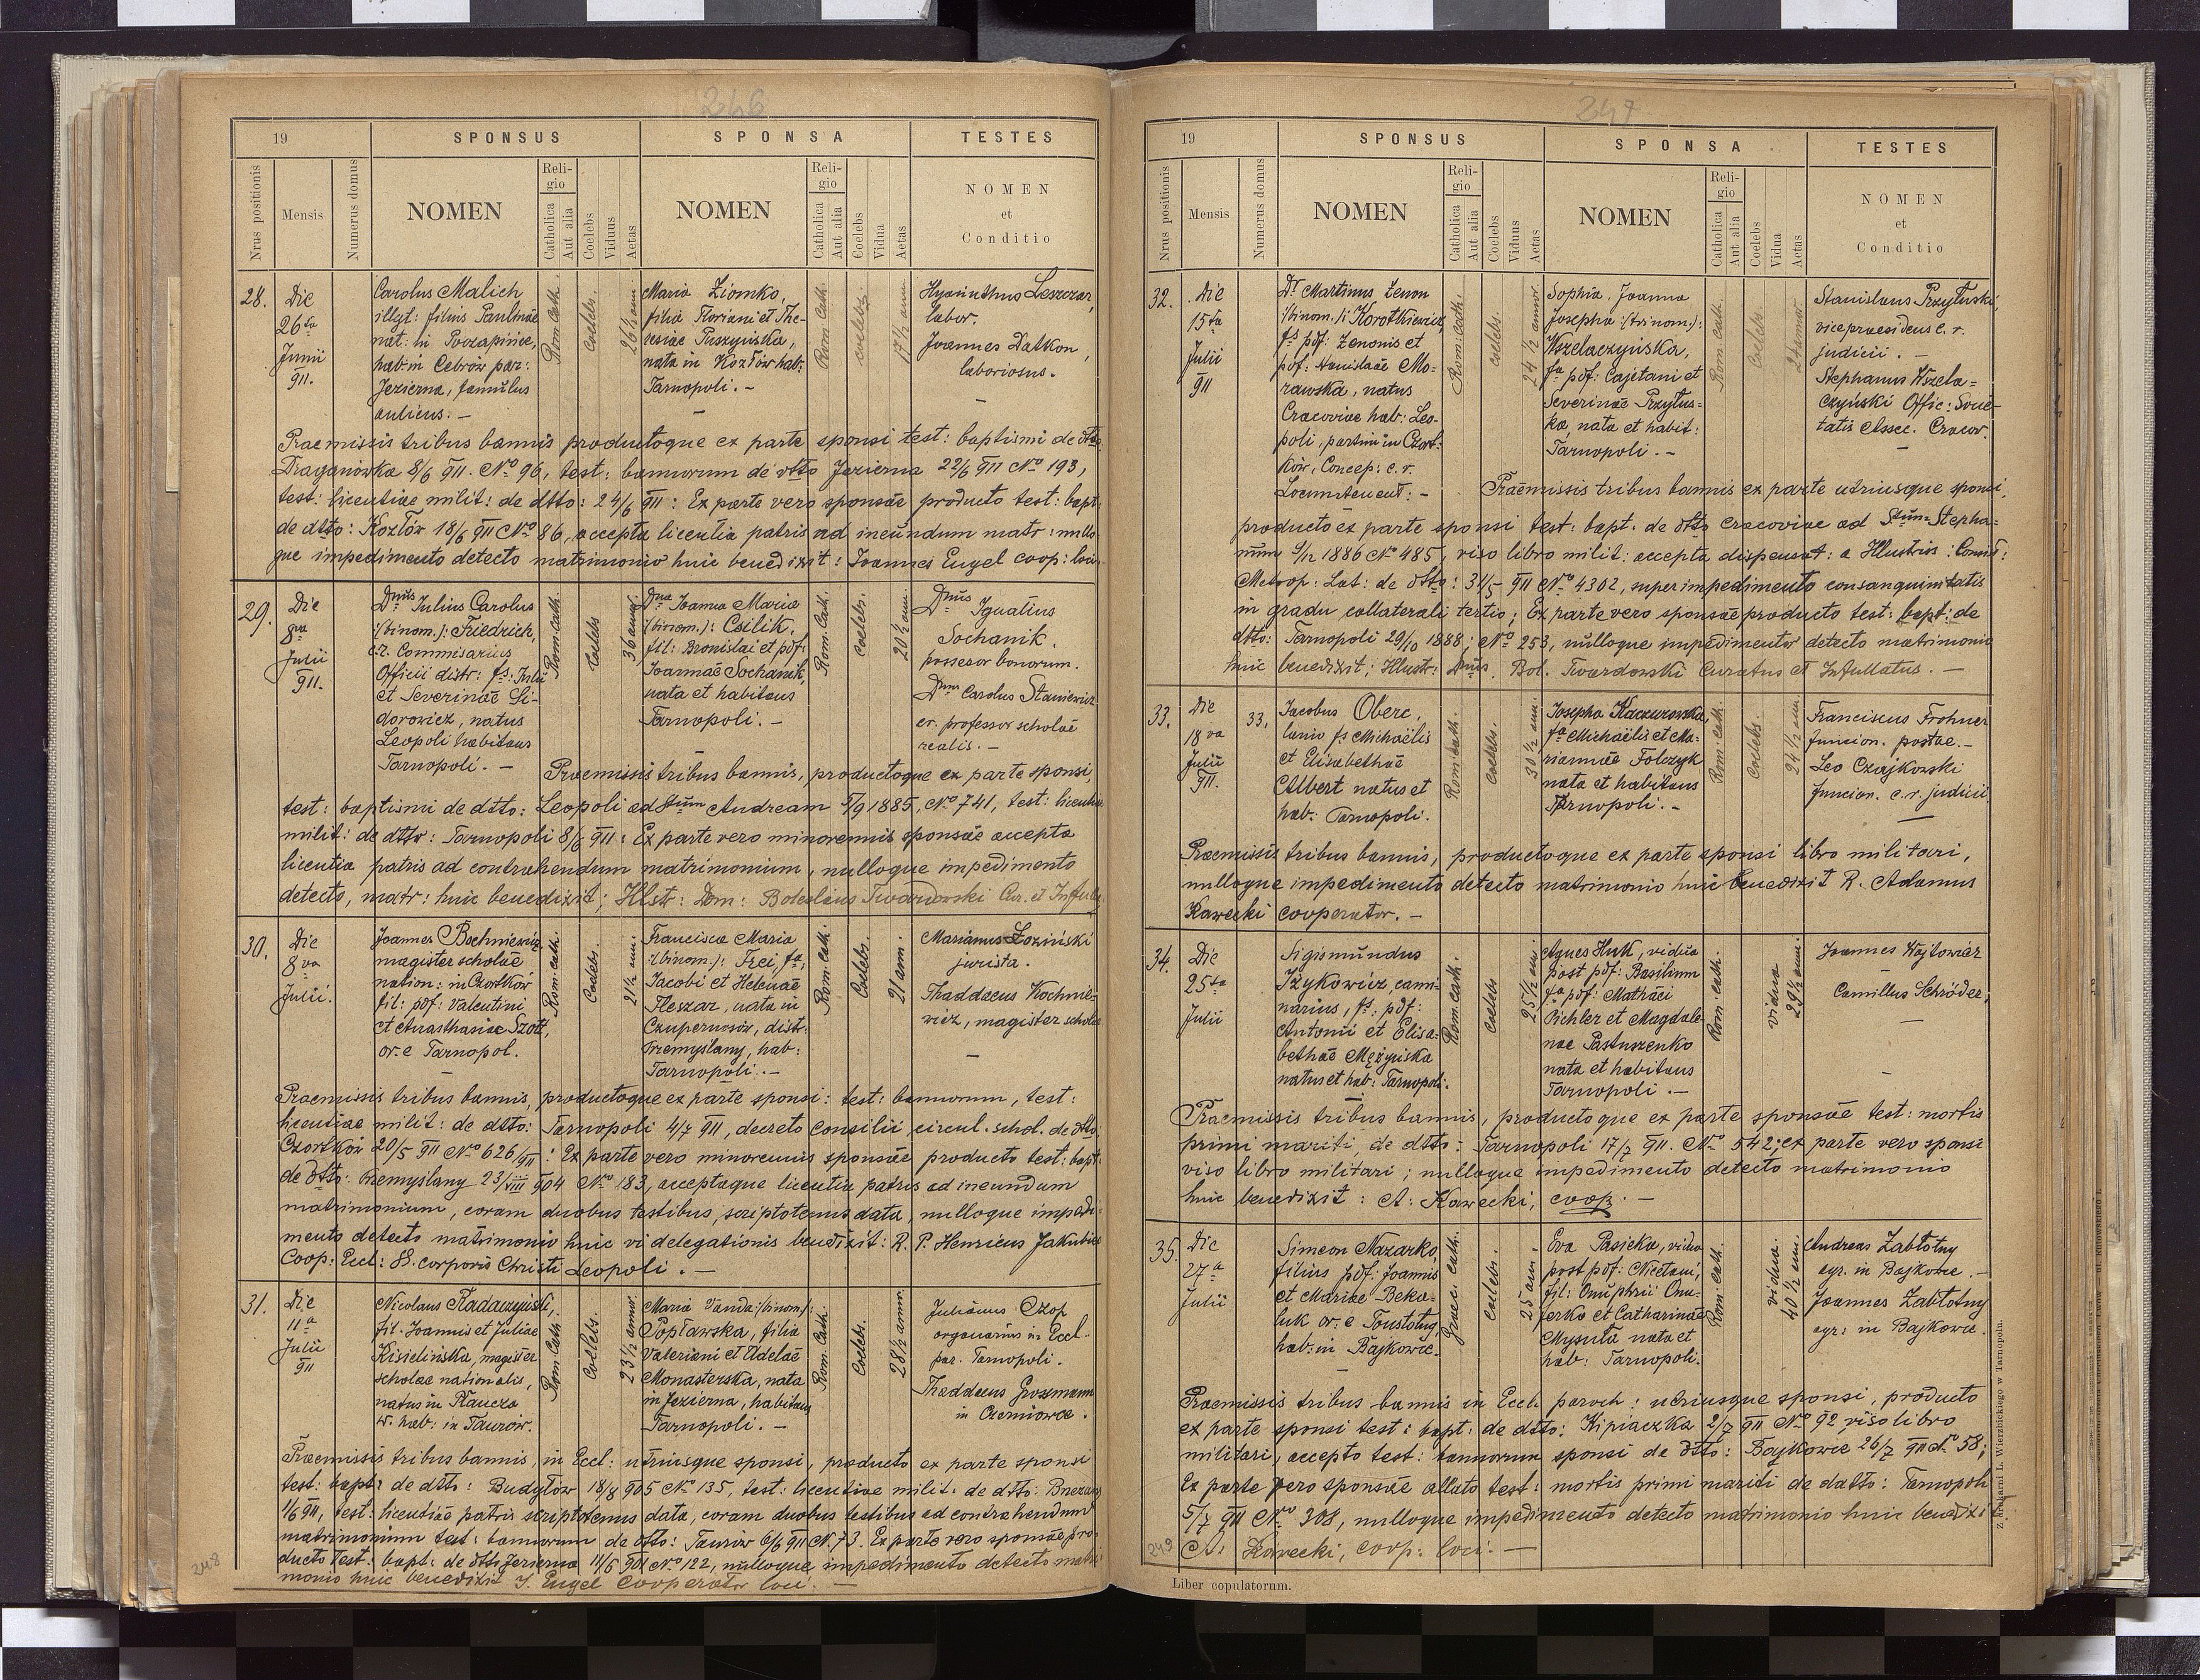 246
19
SPONSUS
SPONSA
TESTES
Nrus positionis
Mensis
Numerus domus
NOMEN
Religio
Catholica
Aut alia
Coelebs
Viduus
Aetas
NOMEN
Religio
Catholica
Aut alia
Coelebs
Vidua
Aetas
NOMEN
et
Conditio
28.
Die
26ta
Junii
911.
Carolus Malich
illgt: filius Paulinae
nat: in Poczapińce,
hab: in Cebrów par:
Jezierna, famulus
aulicus. –
Rom. Cath.
Coelebs.
26½ ann
Maria Ziomko,
filia Floriani et The-
resiae Puszyńska,
nata in Kozłów hab:
Tarnopoli. –
Rom. Cath.
coelebs
17½ ann
Hyacinthus Leszczar,
labor.
Joannes Datkon,
laboriosus.
Praemissis tribus bannis productoque ex parte sponsi test: baptismi de dtto
Draganówka 8/6 911. No 96, test: bannorum de dtto Jezierna 22/6 911 No 193,
test: licentiae milit: de dtto: 24/6 911: Ex parte vero sponsae producto test: bapt:
de dtto: Kozłów 18/6 911 No 86, accepta licentia patris ad ineundum matr: nullo
que impedimento detecto matrimonio huic benedixit: Joannes Engel coop: loci.
29.
Die
8va
Julii
911.
Dnus Julius Carolus
/:binom.:/ Friedrich,
c.r. Commisarius
Officii distr: fs: Julii
et Severinae Si-
dorowicz, natus
Leopoli habitans
Tarnopoli. –
Rom: Cath.
Coelebs
36 annor.
Dna Joanna Maria
/:binom.:/ Csilik,
fil: Bronislai et pdf:
Joannae Sochanik,
nata et habitans
Tarnopoli. –
Rom: Cath.
Coelebs.
20½ ann.
Dnus Ignatius
Sochanik.
possesor bonorum.
Dnus Carolus Staniewicz
er. professor scholae
realis. –
Praemissis tribus bannis, productoque ex parte sponsi,
test: baptismi de dtto: Leopoli ad Stum Andream 5/9 1885, No 741, test: licentiae
milit: de dtto: Tarnopoli 8/6 911: Ex parte vero minorennis sponsae accepta
licentia patris ad contrahendum matrimonium, nulloque impedimento
detecto, matr: huic benedixit; Illstr: Dom: Boleslaus Twardowski Cur. et Infula
30.
Die
8va
Julii.
Joannes Bochniewicz
magister scholae
nation: in Czortków
fil: pdf: Valentini
et Anasthasiae Szott,
or. e Tarnopol.
Rom: cath.
Coelebs.
21½ ann.
Francisca Maria
/:binom.:/ Frei, fa,
Jacobi et Helenae
Fleszar, nata in
Czupernosów, distr:
Przemyślany, hab:
Tarnopoli. –
Rom: cath.
Coelebs.
21 ann.
Marianus Łoziński
jurista.
Thaddaeus Kochnie-
wicz, magister scholae
Praemissis tribus bannis, productoque ex parte sponsi: test: bannorum, test:
licentiae milit: de dtto: Tarnopoli 4/7 911, decreto Consilii circul. schol. de dtto
Czortków 20/5 911 No 626/911: Ex parte vero minorennis sponsae producto test: bapt:
de dtto: Przemyślany 23/VIII 904 No 183, acceptaque licentia patris ad ineundum
matrimonium, coram duobus testibus, scriptotenus data, nulloque impedi-
mento detecto matrimonio huic vi delegationis benedixit: R. P. Henricus Jakubiec
Coop: Eccl: S. corporis Christi Leopoli. –
31.
Die
11a
Julii
911
Nicolaus Radaczyński,
fil. Joannis et Juliae
Kisielińska, magister
scholae nationalis,
natus in Płaucza
W. hab: in Taurów.
Rom: Cath.
Coelebs.
23½ annor.
Maria Vanda /:binom.:/
Popławska, filia
Valeriani et Adelae
Monasterska, nata
in Jezierna, habitans
Tarnopoli. –
Rom: Cath.
Coelebs.
28½ annor.
Julianus Czop
organarius in Eccl.
par. Tarnopoli.
Thaddaeus Grossmann
in Czerniowce.
Praemissis tribus bannis, in Eccl: utriusque sponsi, producto ex parte sponsi
test: bapt: de dtto: Budyłów 18/8 905 No 135, test: licentiae milit: de dtto: Brzeżany
1/6 911, test: licentiae patris scriptotenus data, coram duobus testibus ad contrahendum
matrimonium test: bannorum de dtto: Taurów 6/6 911 N. 73. Ex parte vero sponsae pro-
ducto test: bapt: de dtto Jezierna 11/5 901 No 122, nulloque impedimento detecto matri
monio huic benedixit J. Engel Cooperator loci. –
248
247
19
SPONSUS
SPONSA
TESTES
Nrus positionis
Mensis
Numerus domus
NOMEN
Religio
Catholica
Aut alia
Coelebs
Viduus
Aetas
NOMEN
Religio
Catholica
Aut alia
Coelebs
Vidua
Aetas
NOMEN
et
Conditio
32.
Die
15ta
Julii
911
Dr. Martinus Zenon
/:binom.:/ Korotkiewicz,
fs pdf: Zenonis et
pdf: Stanislaae Mo-
rawska, natus
Cracoviae hab: Leo-
poli, partim in Czort-
ków, Concep: c. r.
Locumtenent: –
Rom: Cath.
coelebs.
24½ annor.
Sophia, Joanna
Josepha /:trinom.:/
Wszelaczyńska,
fa pdf: Cajetani et
Severinae Przytus-
ka, nata et habit:
Tarnopoli. –
Rom: Cath.
Coelebs.
24 annor
Stanislaus Przyłuski,
vicepraesidens c. r.
judicii. –
Stephanus Wszela-
czyński Offic: Socie-
tatis Assec. Cracov.
Praemissis tribus bannis ex parte utriusque sponsi,
producto ex parte sponsi test: bapt. de dtto Cracoviae ad Stum Stepha-
num 9/12 1886 No 485, viso libro milit: accepta dispensat: a Illustris: Consist:
Metrop: Lat: de dtto: 31/5 911 No 4302, super impedimento consanguinitatis
in gradu collaterali tertio; Ex parte vero sponsae producto test: bapt: de
dtto: Tarnopoli 29/10 1888; No 253, nulloque impedimento detecto matrimonio
huic benedixit; Illustr: Dnus. Bol. Twardowski Curatus et Infullatus. –
33.
Die
18va
Julii
911.
33.
Jacobus Oberc,
lanio fs Michaëlis
et Elisabethae
Albert natus et
hab: Tarnopoli.
Rom: cath.
Coelebs.
30½ ann.
Josepha Kaczurowska,
fa Michaëlis et Ma-
riannae Folczyk
nata et habitans
Tarnopoli. –
Rom: cath.
Coelebs.
24½ ann.
Franciscus Frohner
funcion. postae. –
Leo Czajkowski
funcion. c. r. judicii
Praemissis tribus bannis, productoque ex parte sponsi libro militari,
nulloque impedimento detecto matrimonio huic benedixit R. Adamus
Kawecki cooperator. –
34.
Die
25ta
Julii
Sigismundus
Tzykowicz, cami-
narius, fs: pdf:
Antonii et Elisa-
bethae Mężyńska
natus et hab: Tarnopoli.
Rom. cath.
Coelebs
25½ ann.
Agnes Huk, vidua
post pdf: Basilium
fa pdf: Mathaei
Pichler et Magdale-
nae Pastuszenko
nata et habitans
Tarnopoli. –
Rom: cath.
vidua
29½ ann.
Joannes Wójtowicz
Camillus Schröder,
Praemissis tribus bannis, productoque ex parte sponsae test: mortis
primi mariti, de dtto: Tarnopoli 17/7 911. No 542; ex parte vero sponsi
viso libro militari; nulloque impedimento detecto matrimonio
huic benedixit: A: Kawecki, coop. –
35.
Die
27a
Julii
Simeon Nazarko,
filius pdf: Joannis
et Mariae Beka-
luk or. e Toustoług,
hab: in Bajkowce.
Graec. cath.
coelebs.
25 ann.
Eva Pasieka, vidua
post pdf: Nicetam,
fil: Onuphrii Onu-
ferko et Catharinae
Mysuła nata et
hab: Tarnopoli.
Rom: Cath.
vidua.
40½ ann.
Andreas Zabłotny
agr. in Bajkowce. –
Joannes Zabłotny
agr: in Bajkowce.
Praemissis tribus bannis in Eccl. paroch: utriusque sponsi, producto
ex parte sponsi test: bapt: de dtto: Kipiaczka 2/7 911 No 92, viso libro
militari, accepto test: bannorum sponsi de dtto: Bajkowce 26/7 911 No 58;
Ex parte vero sponsae allato test: mortis primi mariti de datto: Tarnopoli
5/7 911 No 308, nulloque impedimento detecto matrimonio huic benedixi
A: Kawecki, coop: loci. –
249
Liber copulatorum.
Z drukarni L. Wierzbickiego w Tarnopolu.